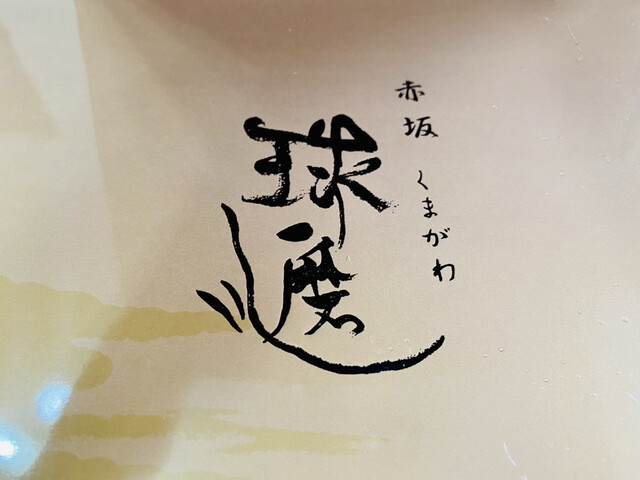 赤坂 くまがわ
球磨